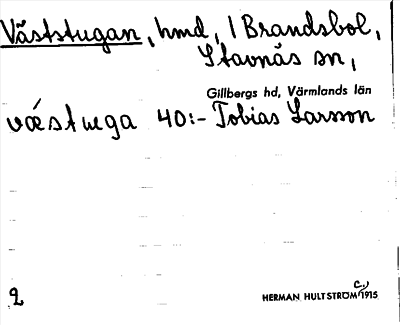 Väststugan, hmd, 1 Brandsbol,
Stavnäs sn,
Gillbergs hd, Värmlands län
væ´stuga 40:- Tobias Larsson
2
HERMAN HULTSTRÖM c./1915